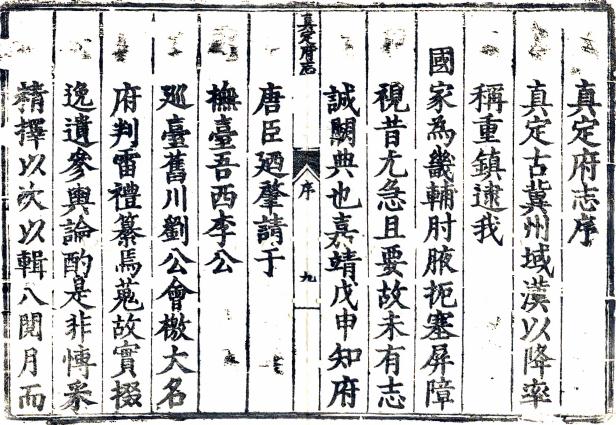 真定府志序
真定古冀州域漢以降率
稱重鎮逮我
國家為畿輔肘腋扼塞屏障
視昔尤急且要故未有志
誠闕典也嘉靖戊申知府
真定府志
序
九
唐臣廼肇請于
撫臺吾西李公
廵臺舊川劉公會檄大名
府判雷禮纂焉蒐故實掇
逸遺參輿論酌是非愽采
精擇以次以輯八閱月而